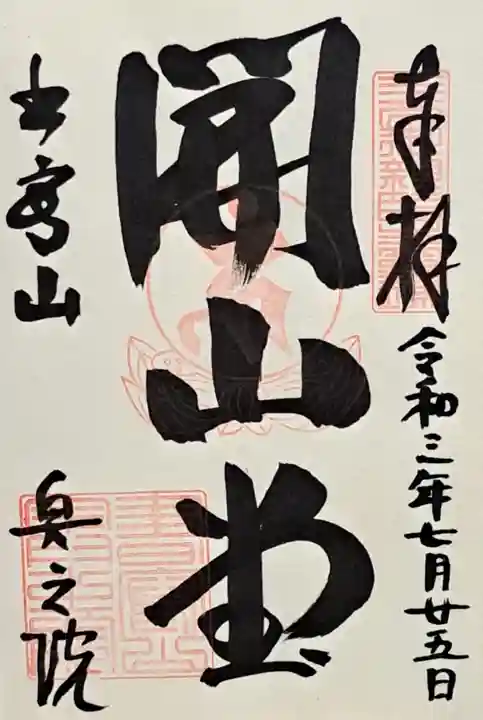 奉拝
令和三年七月廿五日
開山堂
書寫山
奥之院